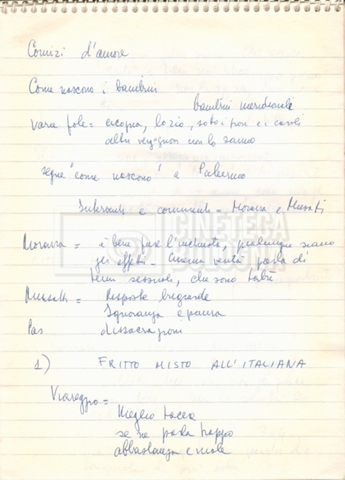 Comizi d'amore
Come nascono i bambini
bambini meridionali
varie fole = cicogna, lo zio, sotto i pori e i cavoli
altri vergognosi non lo sanno
segue "come nascono" a Palermo
Interventi e commenti - Moravia e Musatti
CINETECA
BOLOGNA
Moravia = è bene fare l'inchiesta, qualunque siano
gli effetti - Cinema verità parla di
temi sessuali, che sono tabù
Musatti = Risposte bugiarde
Ignoranza e paura
Pas dissacrazioni
1) FRITTO MISTO ALL'ITALIANA
Viareggio =
Meglio tacere
se ne parla troppo
abbastanza e male